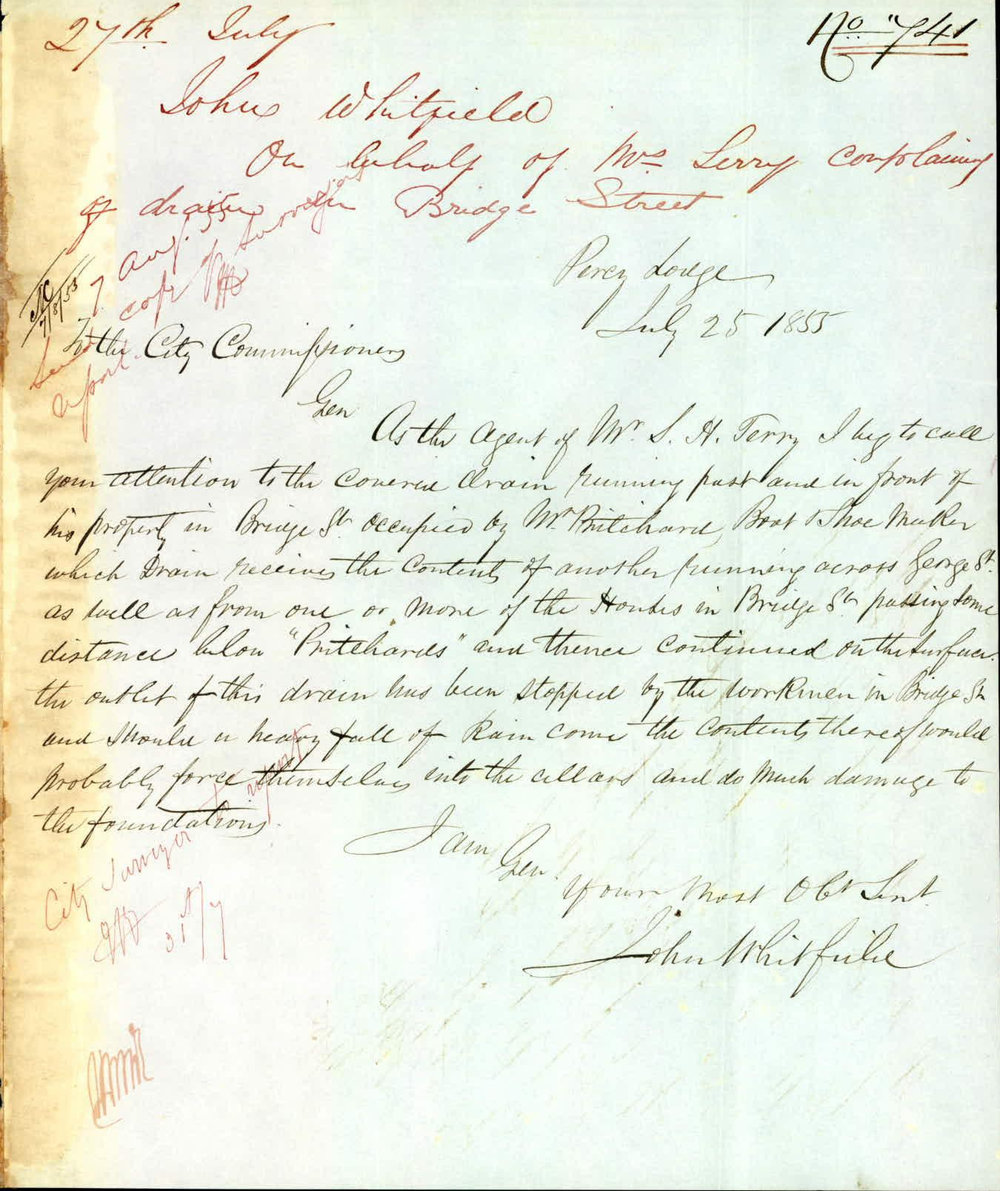 27th July
No 741
John Whitfield
On behalf of Mrs Terry complaining
of drain in Bridge Street
7 Aug. 55
Send copy of Surveyors
report
7/8/55
Percy Lodge
July 25 1855
To the City Commissioners
Gen
As the Agent of Mr. S. H. Terry I beg to call
your attention to the covered drain running past and in front of
his property in Bridge St. occupied by Mr Pritchard, Boot & Shoe Maker
which Drain receives the Contents of another running across George St.
as well as from one or more of the Houses in Bridge St. passing some
distance below "Pritchards" and thence continued on the surface.
the outlet of this drain has been stopped by the workmen in Bridge St
and should a heavy fall of Rain come the Contents thereof would
probably force themselves into the cellars and do much damage to
the foundations.
City Surveyor to report
31st/7
I am Gen
Your Most Obt Servt
John Whitfield